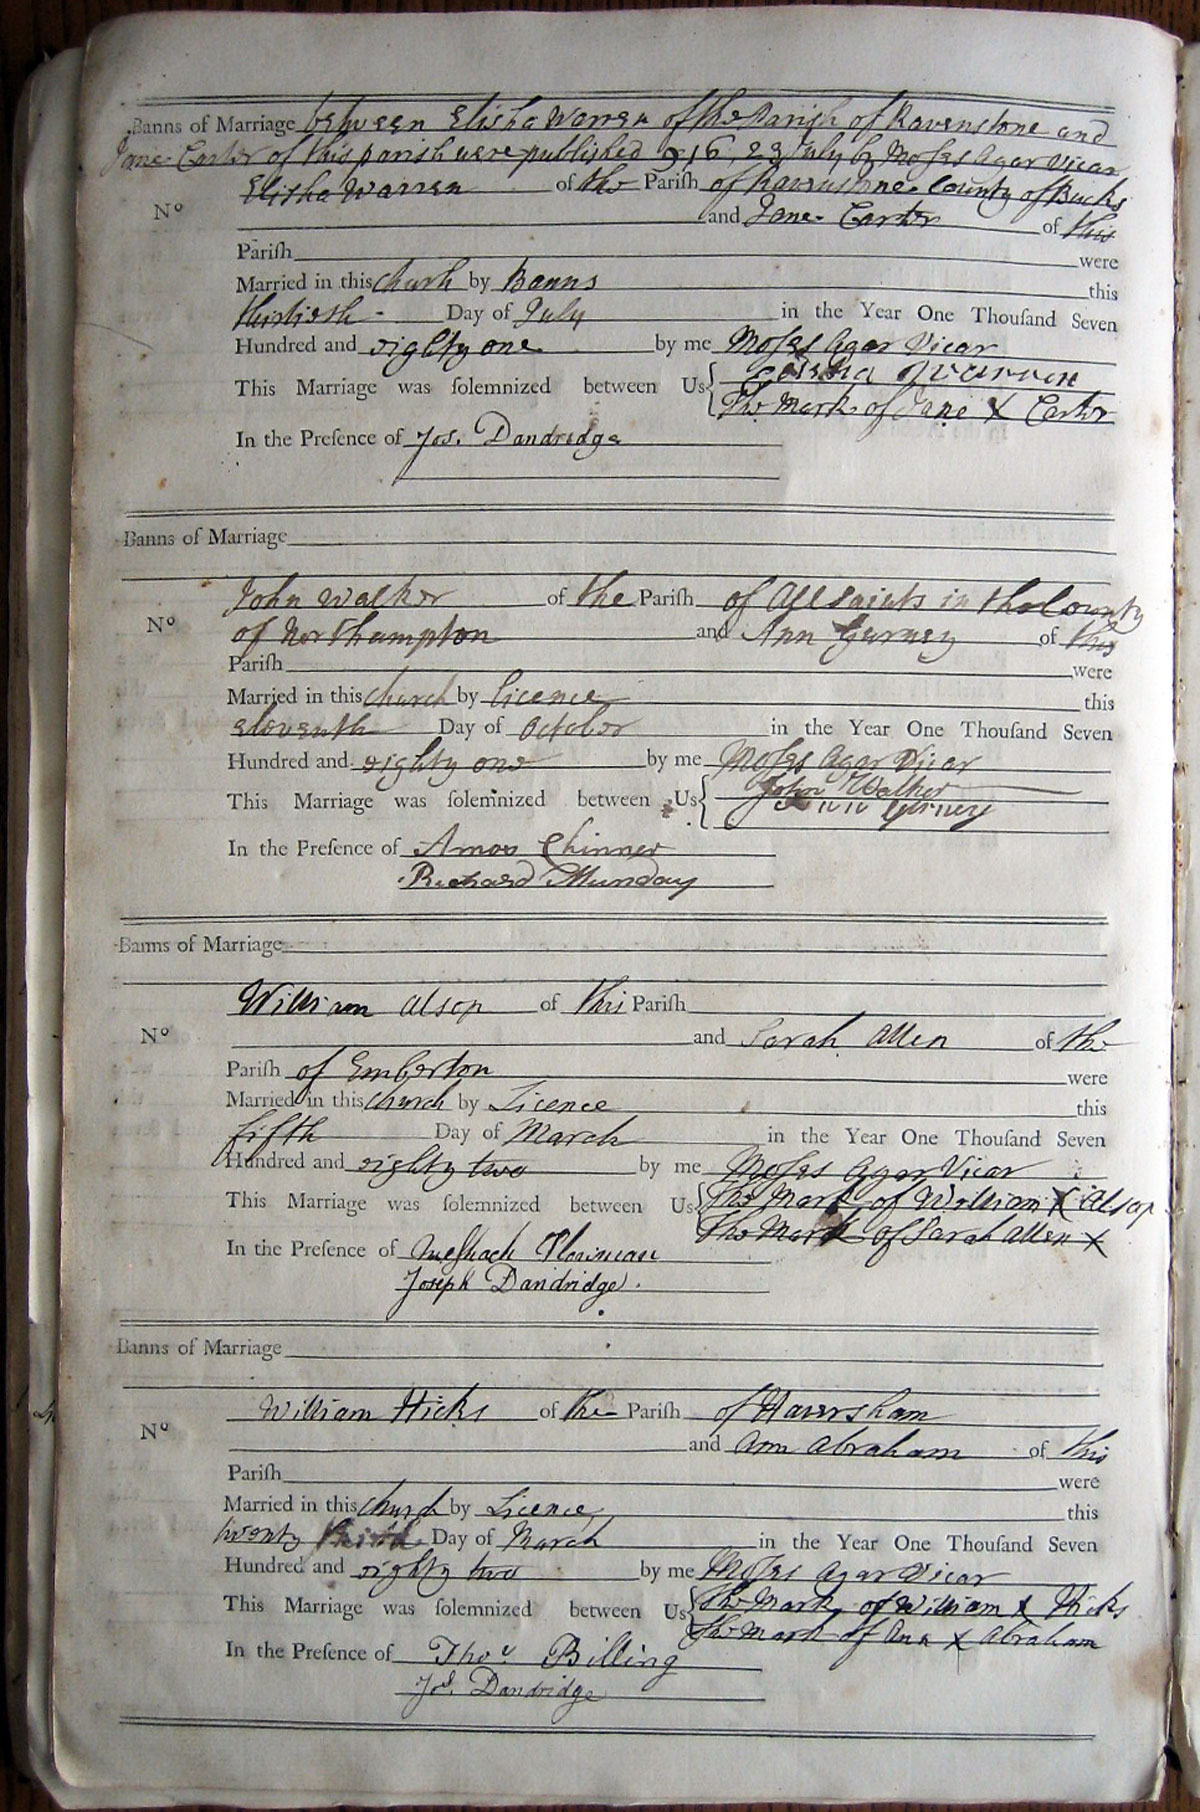 Banns of Marriage between Elisha Warren of the Parish of Ravenstone and
Jane Carter of this parish were published 9, 16, 23 July by Moſes Agar Vicar
Elisha Warren of the Pariſh of Ravenstone County of Bucks
No and Jane Carter of this
Pariſh were
Married in this Church by Banns this
thirtieth Day of July in the Year One Thouſand Seven
Hundred and eighty one by me Moſes Agar Vicar
This Marriage was ſolemnized between Us { Elisha Warren
The Mark of Jane X Carter
In the Preſence of Jos. Dandridge
Banns of Marriage
John Walker of the Pariſh of All Saints in the County
No of Northampton and Ann Gurney of this
Pariſh were
Married in this Church by Licence this
eleventh Day of October in the Year One Thouſand Seven
Hundred and eighty one by me Moſes Agar Vicar
This Marriage was ſolemnized between Us { John Walker
Ann Gurney
In the Preſence of Amos Chinner
Richard Munday
Banns of Marriage
William Alsop of this Pariſh
No and Sarah Allen of the
Pariſh of Emberton were
Married in this Church by Licence this
fifth Day of March in the Year One Thouſand Seven
Hundred and eighty two by me Moſes Agar Vicar
This Marriage was ſolemnized between Us { The Mark of William X Alsop
The Mark of Sarah Allen X
In the Preſence of Meshach
Joseph Dandridge.
Banns of Marriage
William Hicks of the Pariſh of Haversham
No and Ann Abraham of this
Pariſh were
Married in this Church by Licence this
twenty Day of March in the Year One Thouſand Seven
Hundred and eighty two by me Moſes Agar Vicar
This Marriage was ſolemnized between Us { The Mark of William X Hicks
The mark of Ann X Abraham
In the Preſence of Thos Billing
Jos. Dandridge